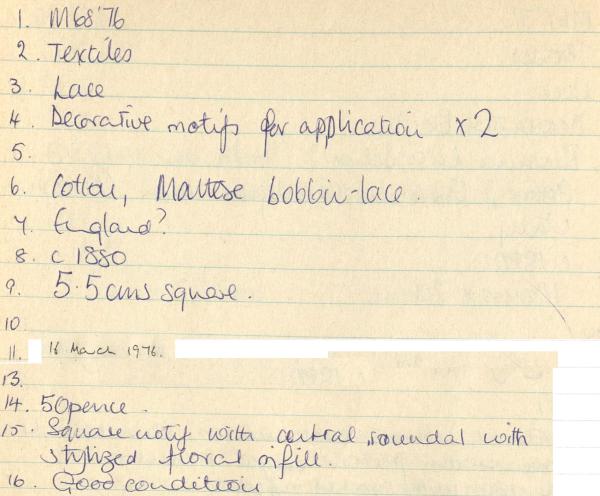 1. M68'76
2. Textiles
3. Lace
4. Decorative motifs for application x 2
5.
6. Cotton, Maltese bobbin-lace.
7. England?
8. c 1880
9. 5.5cms square.
10
11. 16 March 1976.
13.
14. 50pence.
15. Square motif with central roundal with
stylized floral infill.
16. Good condition